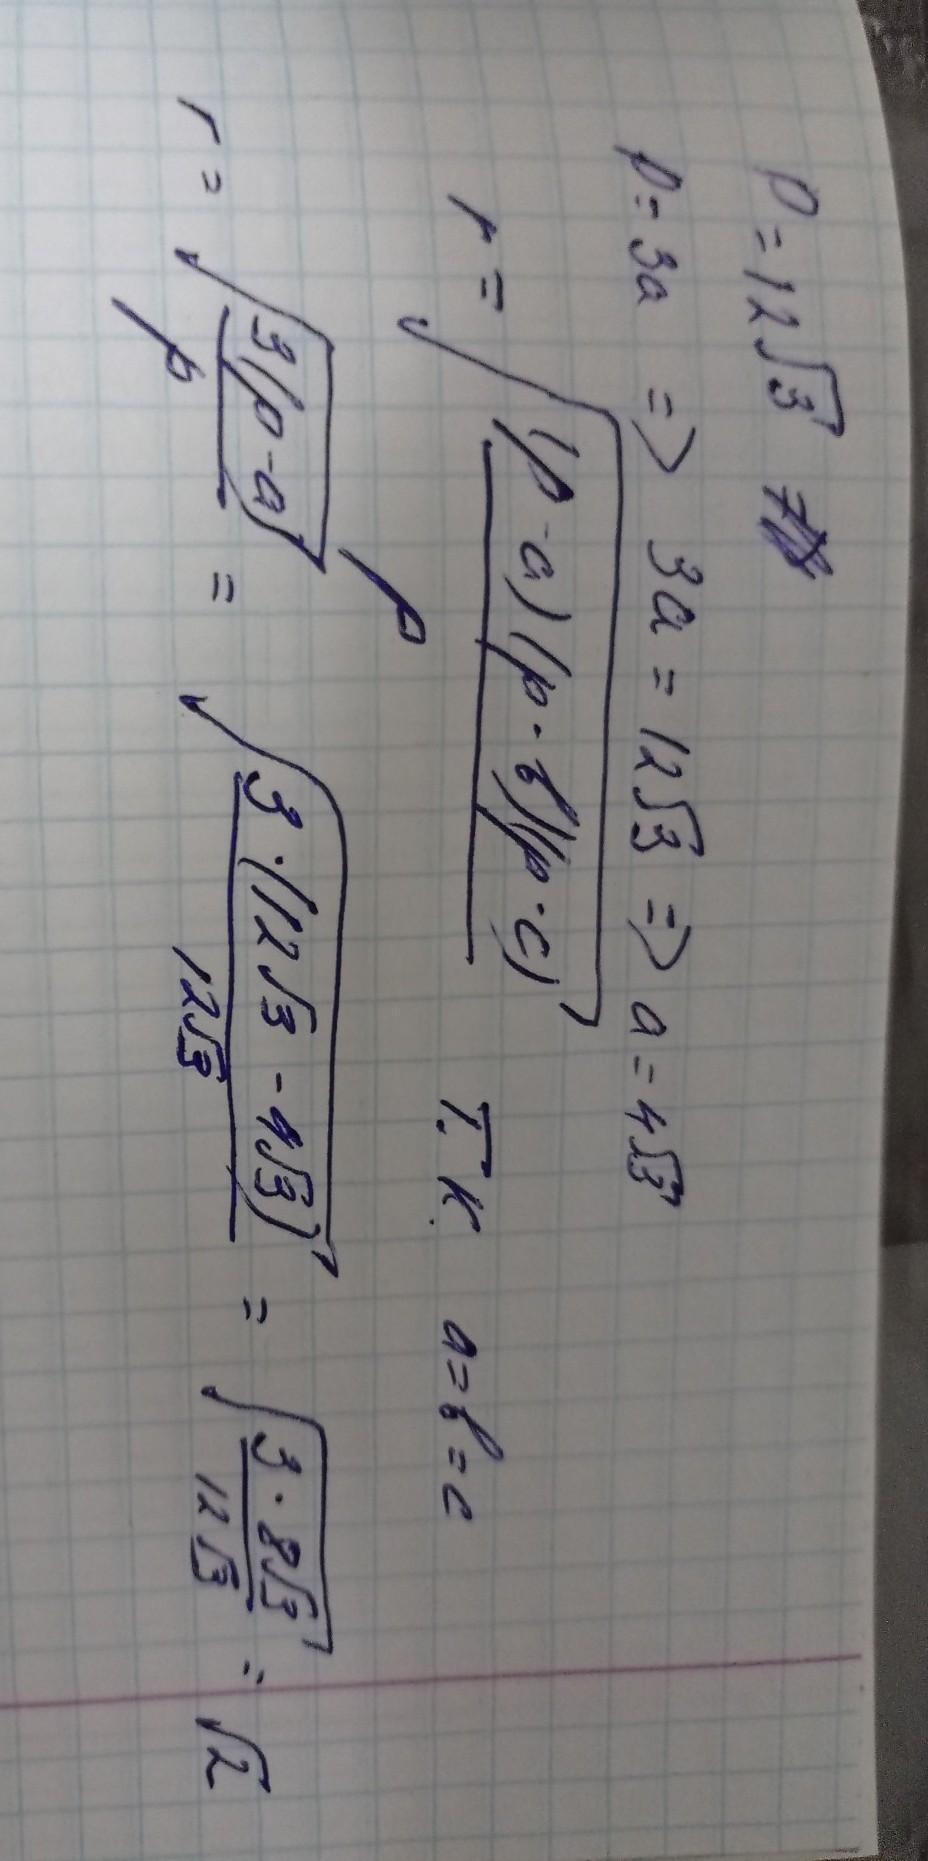 P = 12√3
P = 3a => 3a = 12√3 => a = 4√3
r = √((p-a)(p-b)(p-c)/p) Т.к. a = b = c
r = √(3(p-a)/p) = √(3·(12√3 - 4√3)/12√3) = √(3·8√3/12√3) = √2